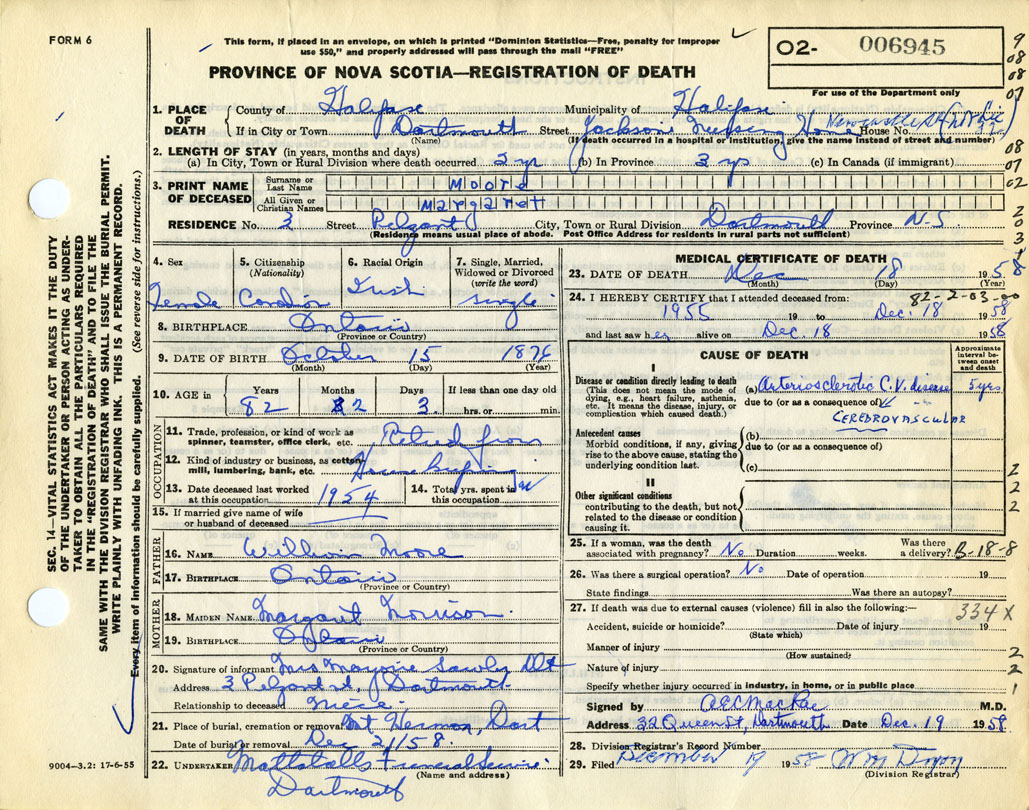 FORM 6
This form, if placed in an envelope, on which is printed "Dominion Statistics—Free, penalty for improper
use $50," and properly addressed will pass through the mail "FREE"
O2- 006945
PROVINCE OF NOVA SCOTIA—REGISTRATION OF DEATH
For use of the Department only
9
08
08
07
1. PLACE OF DEATH { County of Halifax Municipality of Halifax
If in City or Town Dartmouth Street Jackson Nursing Home House No.
(Name) (If death occurred in a hospital or institution, give the name instead of street and number)
2. LENGTH OF STAY (in years, months and days)
(a) In City, Town or Rural Division where death occurred 3 yr (b) In Province 3 yrs (c) In Canada (if immigrant)
08
07
02
3. PRINT NAME OF DECEASED { Surname or Last Name Moore
All Given or Christian Names Margarett
RESIDENCE No. 3 Street City, Town or Rural Division Dartmouth Province N.S.
(Residence means usual place of abode. Post Office Address for residents in rural parts not sufficient)
SEC. 14—VITAL STATISTICS ACT MAKES IT THE DUTY
OF THE UNDERTAKER OR PERSON ACTING AS UNDER-
TAKER TO OBTAIN ALL THE PARTICULARS REQUIRED
IN THE "REGISTRATION OF DEATH" AND TO FILE THE
SAME WITH THE DIVISION REGISTRAR WHO SHALL ISSUE THE BURIAL PERMIT.
WRITE PLAINLY WITH UNFADING INK. THIS IS A PERMANENT RECORD.
Every item of information should be carefully supplied. (See reverse side for instructions.)
4. Sex
Female
5. Citizenship
(Nationality)
6. Racial Origin
Irish
7. Single, Married,
Widowed or Divorced
(write the word)
single
8. BIRTHPLACE Ontario
(Province or Country)
9. DATE OF BIRTH October 15 1876
(Month) (Day) (Year)
10. AGE in { Years Months Days If less than one day old
82 2 3 hrs. or min.
OCCUPATION
11. Trade, profession, or kind of work as
spinner, teamster, office clerk, etc. Retired from
12. Kind of industry or business, as cotton
mill, lumbering, bank, etc. House keeping
13. Date deceased last worked
at this occupation 1954
14. Total yrs. spent in
this occupation
15. If married give name of wife
or husband of deceased
FATHER
16. NAME William Moore
17. BIRTHPLACE Ontario
(Province or Country)
MOTHER
18. MAIDEN NAME Margaret Morrison
19. BIRTHPLACE
(Province or Country)
20. Signature of informant Mrs
Address 3 Dartmouth
Relationship to deceased Niece
21. Place of burial, cremation or removal Mt Hermon, Dart
Date of burial or removal Dec 21/58.
22. UNDERTAKER Funeral Service
(Name and address)
Dartmouth
9004—3.2: 17-6-55
MEDICAL CERTIFICATE OF DEATH
23. DATE OF DEATH Dec 18 1958
(Month) (Day) (Year)
82-2-03-00
24. I HEREBY CERTIFY that I attended deceased from:
1955 19 to Dec. 18 1958
and last saw her alive on Dec. 18 1958
CAUSE OF DEATH
Approximate
interval between
onset
and death
I
Disease or condition directly leading to death
(This does not mean the mode of
dying, e.g., heart failure, asthenia,
etc. It means the disease, injury, or
complication which caused death.)
(a) Arteriosclerotic C.V. disease 5 yrs
due to (or as a consequence of)
CEREBROVASCULAR
Antecedent causes
Morbid conditions, if any, giving
rise to the above cause, stating the
underlying condition last.
(b)
due to (or as a consequence of)
(c)
II
Other significant conditions
contributing to the death, but not
related to the disease or condition
causing it.
2
2
2
25. If a woman, was the death
associated with pregnancy? No Duration weeks. Was there
a delivery? B-18-8
26. Was there a surgical operation? No Date of operation 19
State findings Was there an autopsy?
27. If death was due to external causes (violence) fill in also the following:—
334 X
Accident, suicide or homicide? Date of injury 19
(State which)
Manner of injury
(How sustained)
Nature of injury
Specify whether injury occurred in industry, in home, or in public place
2
2
1
Signed by AEC MacRae M.D.
Address 32 Queen St, Dartmouth Date Dec. 19 1958
28. Division Registrar's Record Number
29. Filed December 19 1958
(Division Registrar)